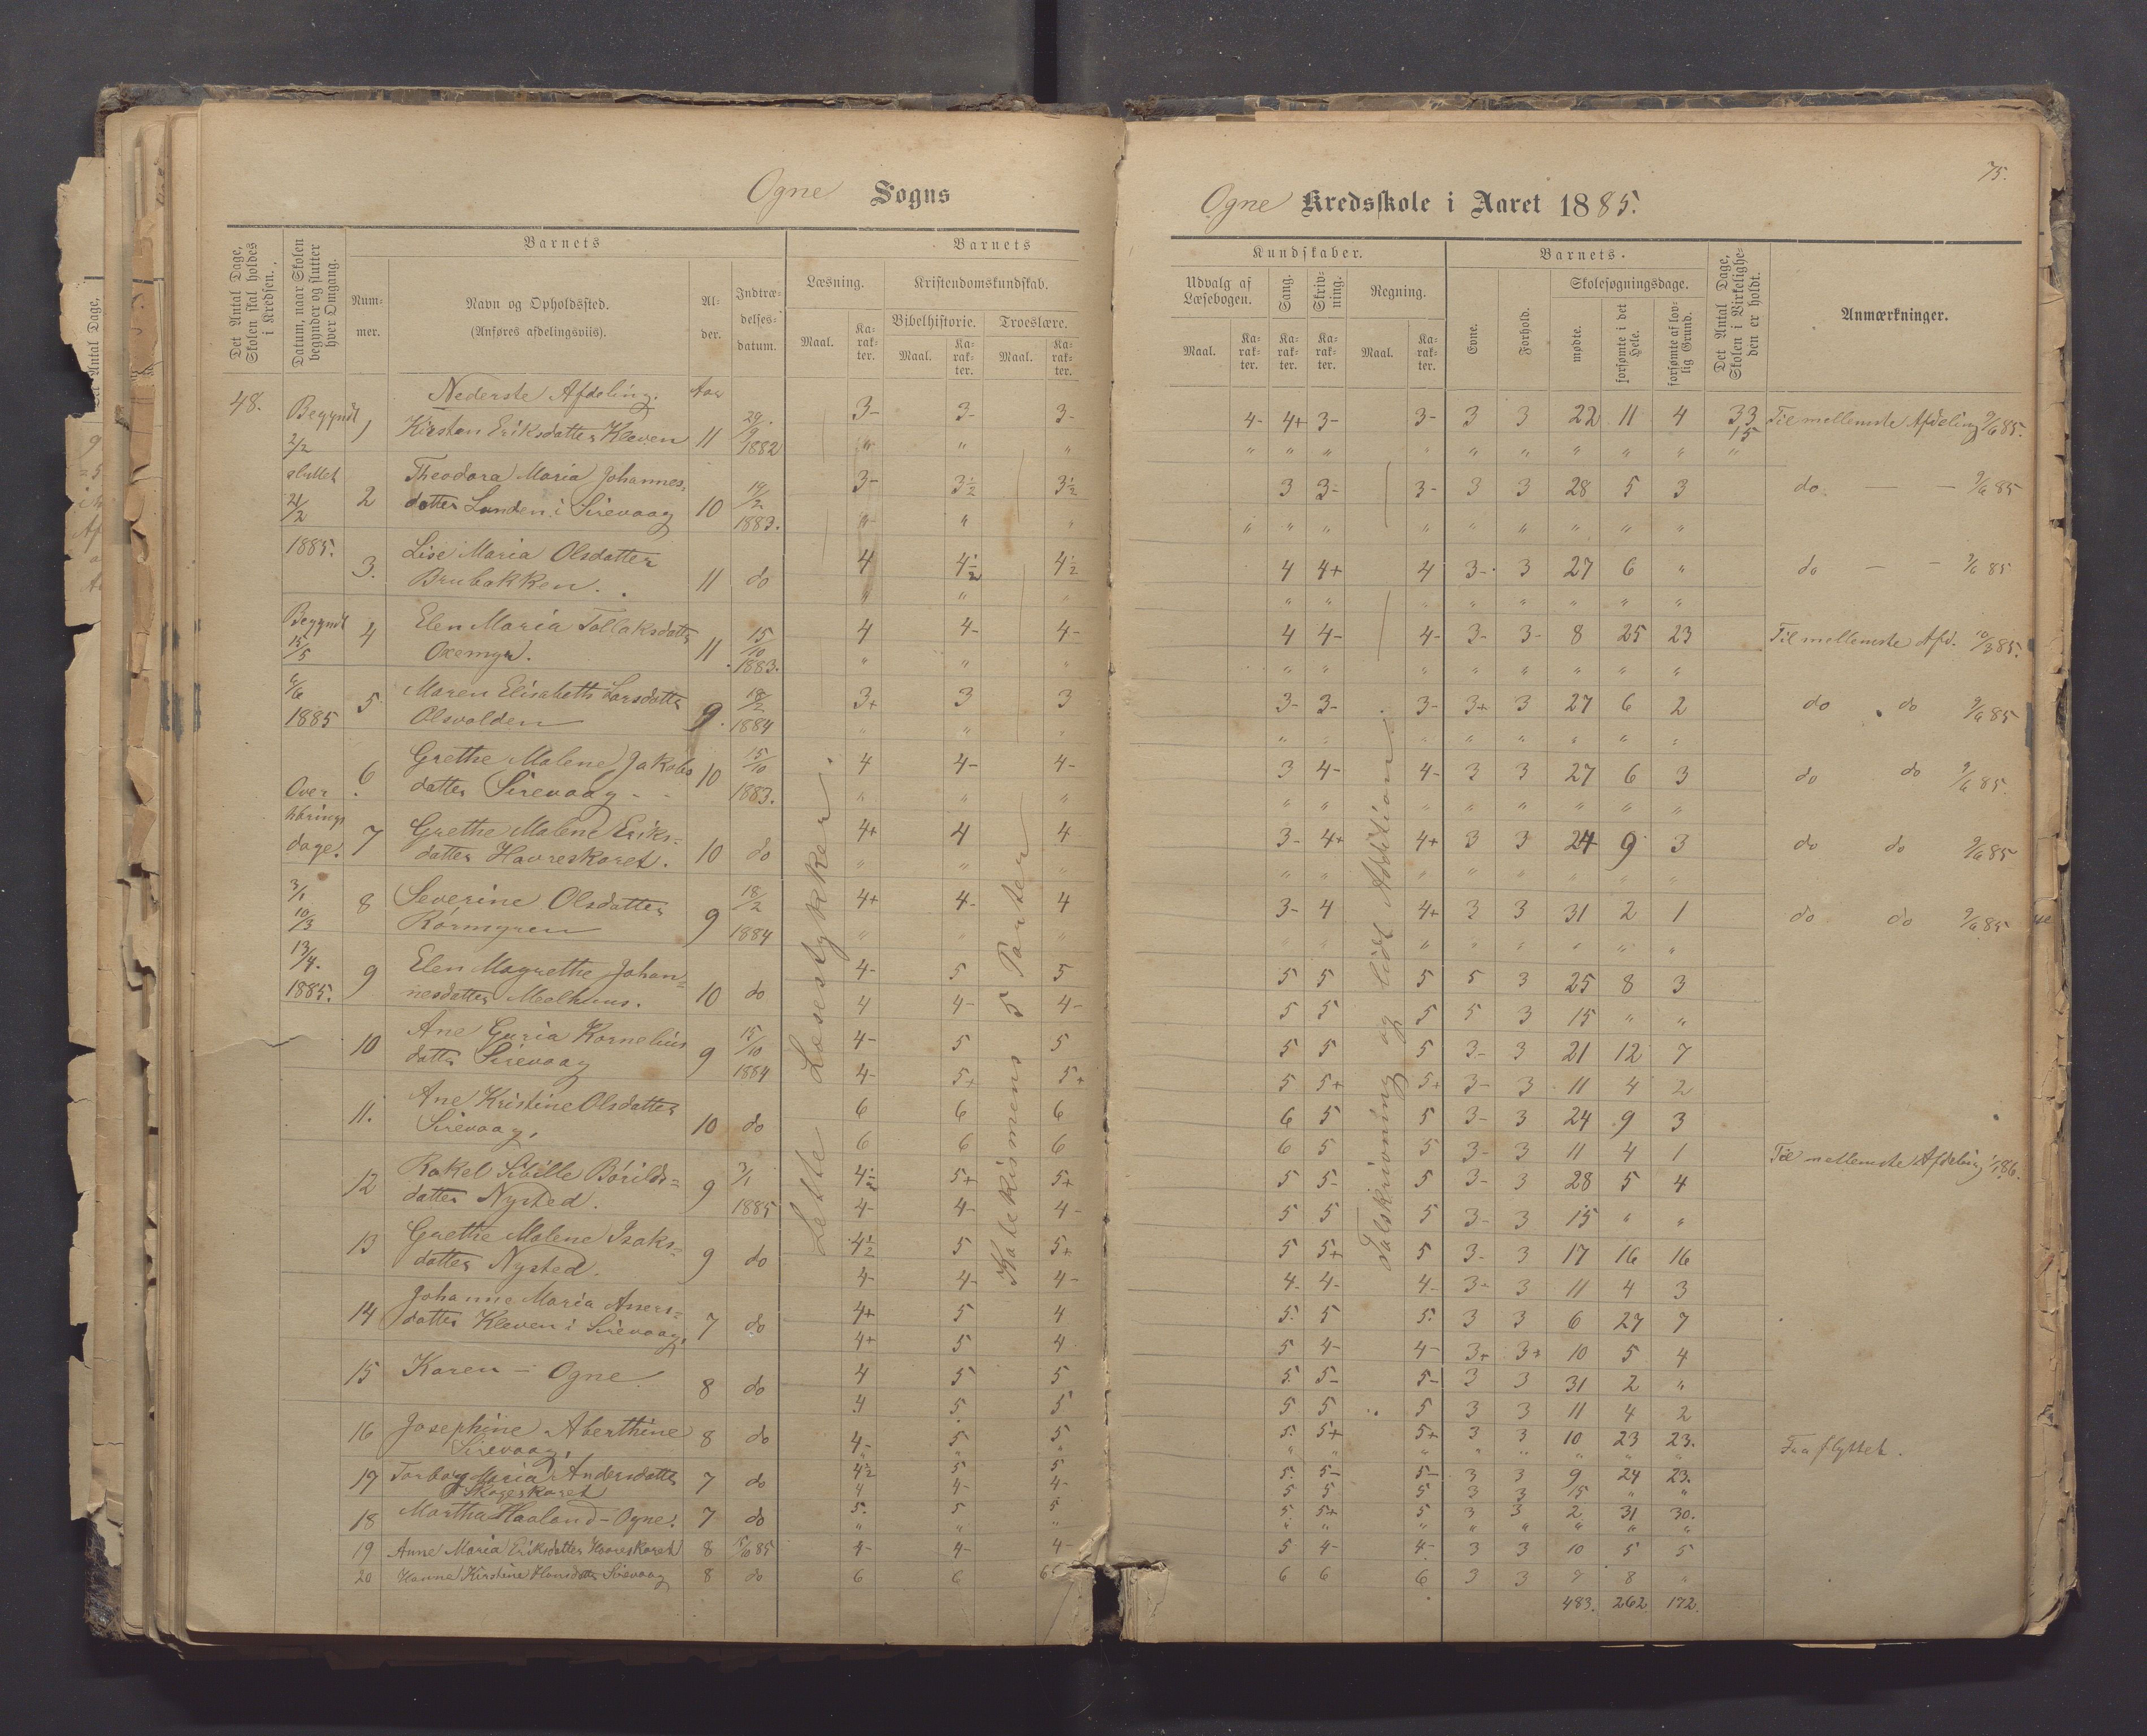 75.
Ogne Sogns
Ogne Kredsskole i Aaret 1885.
Det Antal Dage, Skolen skal holdes i Kredsen.
Datum, naar Skolen begynder og slutter hver Omgang.
Barnets
Num-
mer.
Navn og Opholdssted.
(Anføres afdelingsviis).
Al-
der.
Indtræ-
delses-
datum.
Barnets
Læsning.
Kristendomskundskab.
Bibelhistorie.
Troeslære.
Maal.
Ka-
rak-
ter.
Maal.
Ka-
rak-
ter.
Maal.
Ka-
rak-
ter.
Kundskaber.
Udvalg af
Læsebogen.
Sang.
Skriv-
ning.
Regning.
Maal.
Ka-
rak-
ter.
Ka-
rak-
ter.
Ka-
rak-
ter.
Maal.
Ka-
rak-
ter.
Barnets.
Evne.
Forhold.
Skolesøgningsdage.
mødte.
forsømte i det Hele.
forsømte af lov-
lig Grund.
Det Antal Dage, Skolen i Virkelighe-
den er holdt.
Anmærkninger.
48.
Nederste Afdeling.
Aar
Begyndt
2/2
sluttet
21/2
1885.
Begyndt
15/5
6/6
1885
Over
hørings
dage.
3/1
10/3
13/4.
1885.
Lette Læsestykker.
Katekismens 5 Parter
Talskrivning og lidt Addition
1 Kirsten Eriksdatter Kleven 11 29/9 1882 3- 3- 3- 4- 4+ 3- 3- 3 3 22 11 4 33 Til mellemste Afdeling 9/6 85.
15
2 Theodora Maria Johannes-
datter Lunden i Sirevaag 10 19/2 1883. 3- 3½ 3½ 3 3- 3- 3 3 28 5 3 do — — 9/6 85
3. Lise Maria Olsdatter
Brubakken. 11 do 4 4½ 4½ 4 4+ 4 3- 3 27 6 " do — — 9/6 85
4 Elen Maria Tollaksdatter
Oxemyr. 11 15/10 1883. 4 4- 4- 4 4- 4- 3- 3- 8 25 23 Til mellemste Afd. 10/3 85.
5 Maren Elisabeth Larsdatter
Olsvolden 9. 18/2 1884 3+ 3 3 3- 3- 3- 3+ 3 27 6 2 do do 9/6 85
6 Grethe Malene Jakobs
datter Sirevaag 10 15/10 1883. 4 4- 4- 3 4- 4- 3 3 27 6 3 do do 9/6 85.
7 Grethe Malene Eriks-
datter Havreskaret. 10 do 4+ 4 4 3- 4+ 4+ 3 3 24 9 3 do do 9/6 85
8 Severine Olsdatter
Rørmyren 9 18/2 1884 4+ 4- 4 3- 4 4+ 3 3 31 2 1 do do 9/6 85
9 Elen Magrethe Johan-
nesdatter Meelhuus. 10 do 4- 5 5 5 5 5 5 3 25 8 3
4 4- 4- 5 5 5 5 3 15 " "
10 Ane Guria Kornelius
datter Sirevaag 9 15/10 1884 4- 5 5 5 5 5 3- 3 21 12 7
4- 5+ 5+ 5 5+ 5+ 3- 3 11 4 2
11. Ane Kristine Olsdatter
Sirevaag. 10 do 6 6 6 6 5 5 3- 3 24 9 3
6 6 6 6 5 5 3- 3 11 4 1
12 Rakel Sibille Bårilds-
datter Nysted. 9 3/1 1885 4½ 5+ 5+ 5 5- 5 3- 3 28 5 4 Til mellemste Afdeling 1/1 86.
4- 4- 4- 5 5 5 3- 3 15 " "
13 Grethe Malene Isaks-
datter Nysted. 9 do 4½ 5 5+ 5 5+ 5 3- 3 17 16 16
4- 4- 4- 4- 4- 4- 3+ 3 11 4 3
14 Johanne Maria Aners-
datter Kleven i Sirevaag. 7 do 4+ 5 4 5. 5 5. 3 3 6 27 7
4+ 5 4 5 4- 4- 3+ 3+ 10 5 4
15 Karen — Ogne 8 do 4 5 5 5. 5- 5- 3 3 31 2 "
4 5. 5 5 5 5 3 3 11 4 2
16 Josephine Aberthine
Sirevaag. 8 do 4- 5 5 5. 5+ 5+ 3 3 10 23 23. Fraflyttet.
17 Torborg Maria Andersdatter
Skogeskaret 7 do 4½ 5 5 5. 5- 5- 3 3 9 24 23.
4 4- 4- 5 5 5 3 3 15 " "
18 Martha Haaland - Ogne. 7 do 5. 5 5 5. 5+ 5 3 3 2 31 30.
19 Anne Maria Eriksdatter Havreskaret 8 15/10 85 4- 4- 4- 5 4- 4- 3 3 10 5 5
20 Hanne Kirstine Hansdatter Sirevaag 8 do 6 6 6 6 6 6 3 3 7 8 "
483. 262 172.